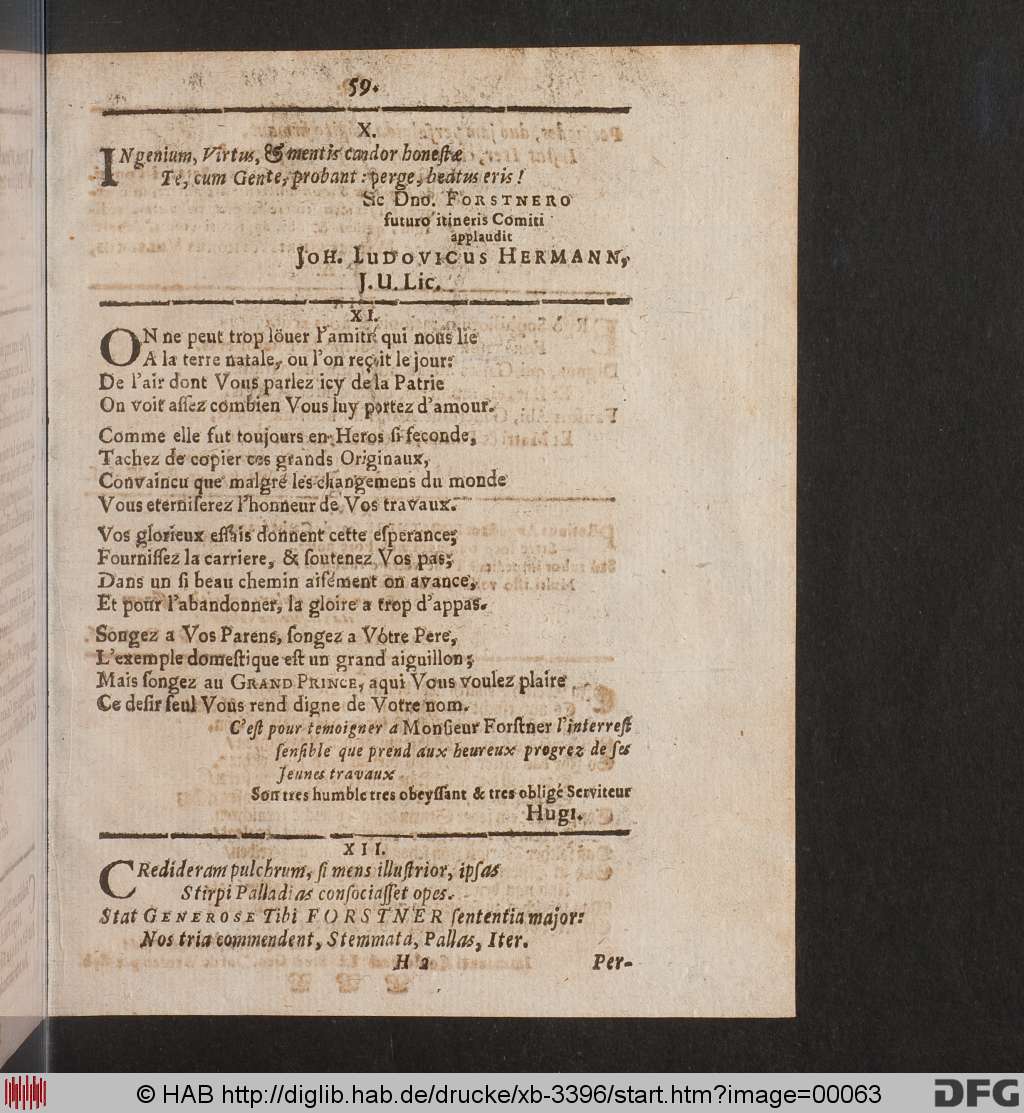 59.
X.
INgenium, Virtus, & mentis candor honestæ
Te, cum Gente, probant : perge, beatus eris !
Sic Dno. FORSTNERO
futuro itineris Comiti
applaudit
JOH. LUDOVICUS HERMANN,
J. U. Lic.
XI.
ON ne peut trop löuer l'amitié qui nous lie
A la terre natale, ou l'on reçoit le jour:
De l'air dont Vous parlez icy de la Patrie
On voit aſſez combien Vous luy portez d'amour.
Comme elle fut toujours en Heros ſi feconde,
Tachez de copier ces grands Originaux,
Convaincu que malgré les changemens du monde
Vous eterniſerez l'honneur de Vos travaux.
Vos glorieux eſſais donnent cette eſperance;
Fourniſſez la carriere, & ſoutenez Vos pas;
Dans un ſi beau chemin aiſément on avance,
Et pour l'abandonner, la gloire a trop d'appas.
Songez a Vos Parens, ſongez a Vôtre Pere,
L'exemple domeſtique eſt un grand aiguillon;
Mais ſongez au GRAND PRINCE, aqui Vous voulez plaire
Ce deſir ſeul Vous rend digne de Votre nom.
C'eſt pour temoigner a Monſieur Forſtner l'interreſt
ſenſible que prend aux heureux progrez de ſes
Jeunes travaux
Son tres humble tres obeyſſant & tres obligé Serviteur
Hugi.
XII.
CRedideram pulchrum, ſi mens illuſtrior, ipſas
Stirpi Palladias conſociaſſet opes.
Stat GENEROSE Tibi FORSTNER ſententia major:
Nos tria commendent, Stemmata, Pallas, Iter.
H 2 Per-
© HAB http://diglib.hab.de/drucke/xb-3396/start.htm?image=00063
DFG